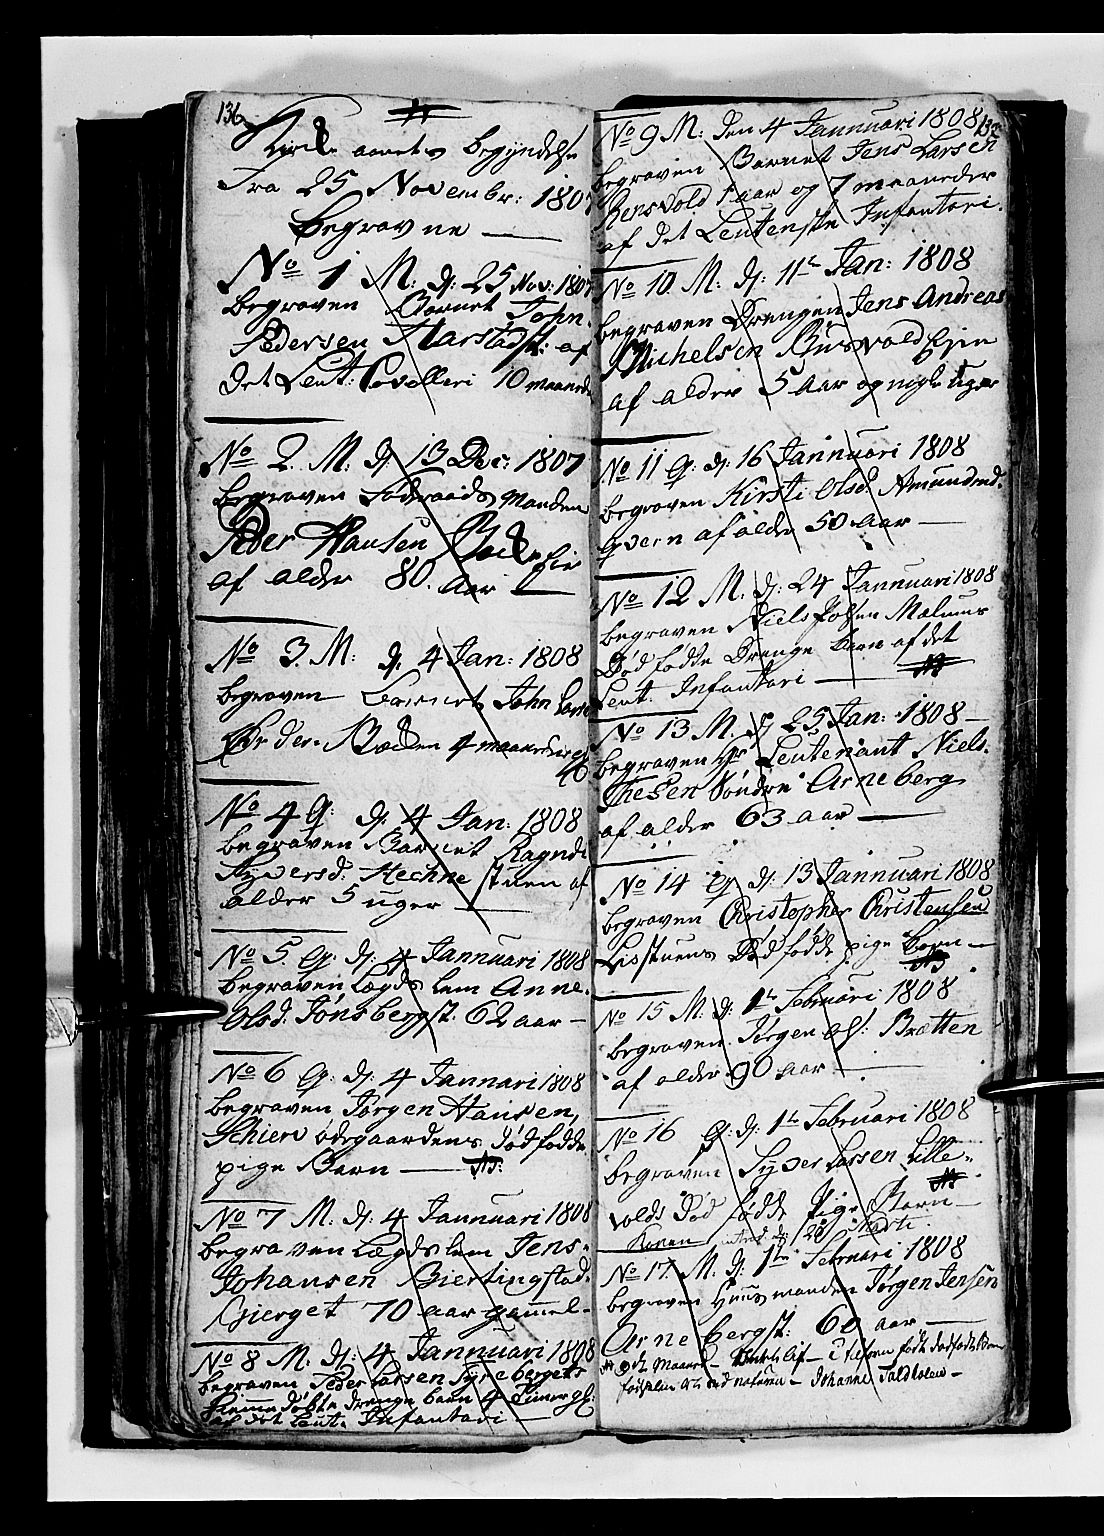 136
Kirke aarets begyndelse
Fra 25 November: 1807
Begravne
No 1 M: d: 25 Nov: 1807
begraven Barnet John
Pedersen Harstadst: af
det Leut: Covelleri 10 maaneder
No 2. M: d: 13 Dec: 1807
begraven Føderaads Manden
Peder Hansen
af alder 80. Aar
No 3. M: d: 4 Jan: 1808
begraven Barnet John Lars
4 maaneder
No 4 Q: d: 4 Jan: 1808
begraven Barnet Ragndi
Syversd: Hechne stuen af
alder 5 uger
No 5. Q: d: 4 Jannuari 1808
begraven Lægds lem Anne
Olsd: Tønsbergst: 62 aar
No 6 Q: d: 4 Jannari 1808
begraven Jørgen Hansen
Schien ødegaardens dødfødde
pige Barn
No 7 M: d: 4 Jannuari 1808
begraven Lægds lem Jens
Johansen Biertingstad
Bierget 70 aar gammel
No 8 M. d: 4 Jannuari 1808
begraven Peder Larsen Tyrebergets
hieme døbte drenge barn 4 Timer gl:
af det Leut. Infantari
137
No 9 M: den 4 Jannuari 1808
begraven Barnet Jens Larsen
Rensvold 1 aar og 7 maaneder
af det Leutenste Infantari.
No 10. M: d: 11te Jan: 1808
begraven Drengen Jens Andreas
Michelsen Ejen
af alder 5 Aar og nigle Uger
No 11 Q: d: 16 Jannuari 1808
begraven Kirsti Olsd: Amundrud
qvern af alder 50 Aar
No 12 M. d: 24 Jannuari 1808
begraven Niels Polsen Malmns
Død fødde Drenge Barn af det
Leut: Infantari
No 13 M. d 25 Jan: 1808
begraven Hr Leutenant Niels
Thesen Søndre Arneberg
af alder 63 aar
No 14 Q d: 13 Jannuari 1808
begraven Christopher Christensen
Lisstuens Død fødde pige Barn
No 15 M. d: 1te Februari 1808
begraven Jørgen Ols: Bratten
af alder 90 Aar
No 16 Q: d: 1te Februari 1808
begraven Syver Larsen Lille
volds Død fødde Pige Barn
Konen introd: d: 20 Marti
No 17. M. d: 1te Februari 1808
begraven Huus manden Jørgen Jensen
Arnebergst: 60 aar
Johanne